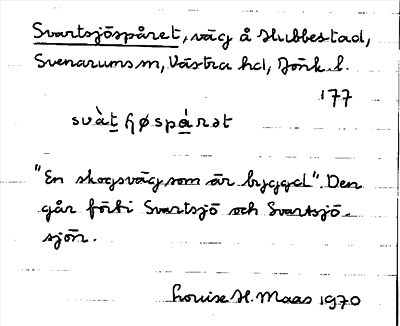 Svartsjöspåret, väg å Stubbestad,
Svenarums sn, Västra hd, Jönk. l.
177
"En skogsväg som är byggd". Den
går förbi Svartsjö och Svartsjö-
sjön.
Louise H. Maas 1970